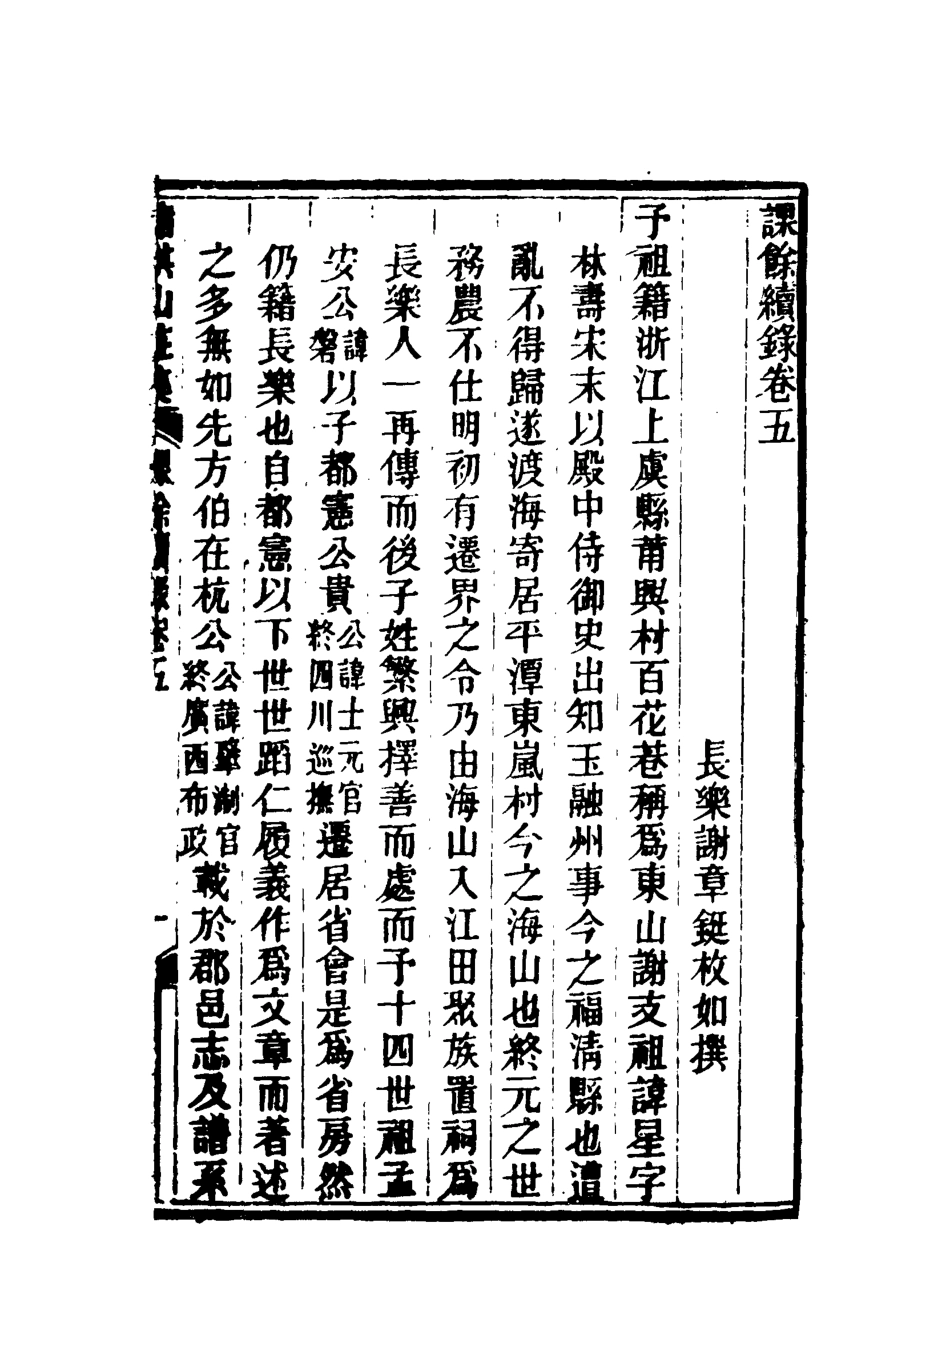 課餘續錄卷五
長樂謝章鋌枚如撰
予祖籍浙江上虞縣莆興村百花巷稱爲東山謝支祖諱星字
林壽宋末以殿中侍御史出知玉融州事今之福清縣也遭
亂不得歸遂渡海寄居平潭東嵐村今之海山也終元之世
務農不仕明初有遷界之令乃由海山入江田聚族置祠爲
長樂人一再傳而後子姓繁興擇善而處而予十四世祖孟
安公諱磐以子都憲公貴公諱士元官終四川巡撫遷居省會是爲省房然
仍籍長樂也自都憲以下世世蹈仁履義作爲文章而著述
之多無如先方伯在杭公公諱肇淛官終廣西布政載於郡邑志及譜系
課餘續錄卷五
一